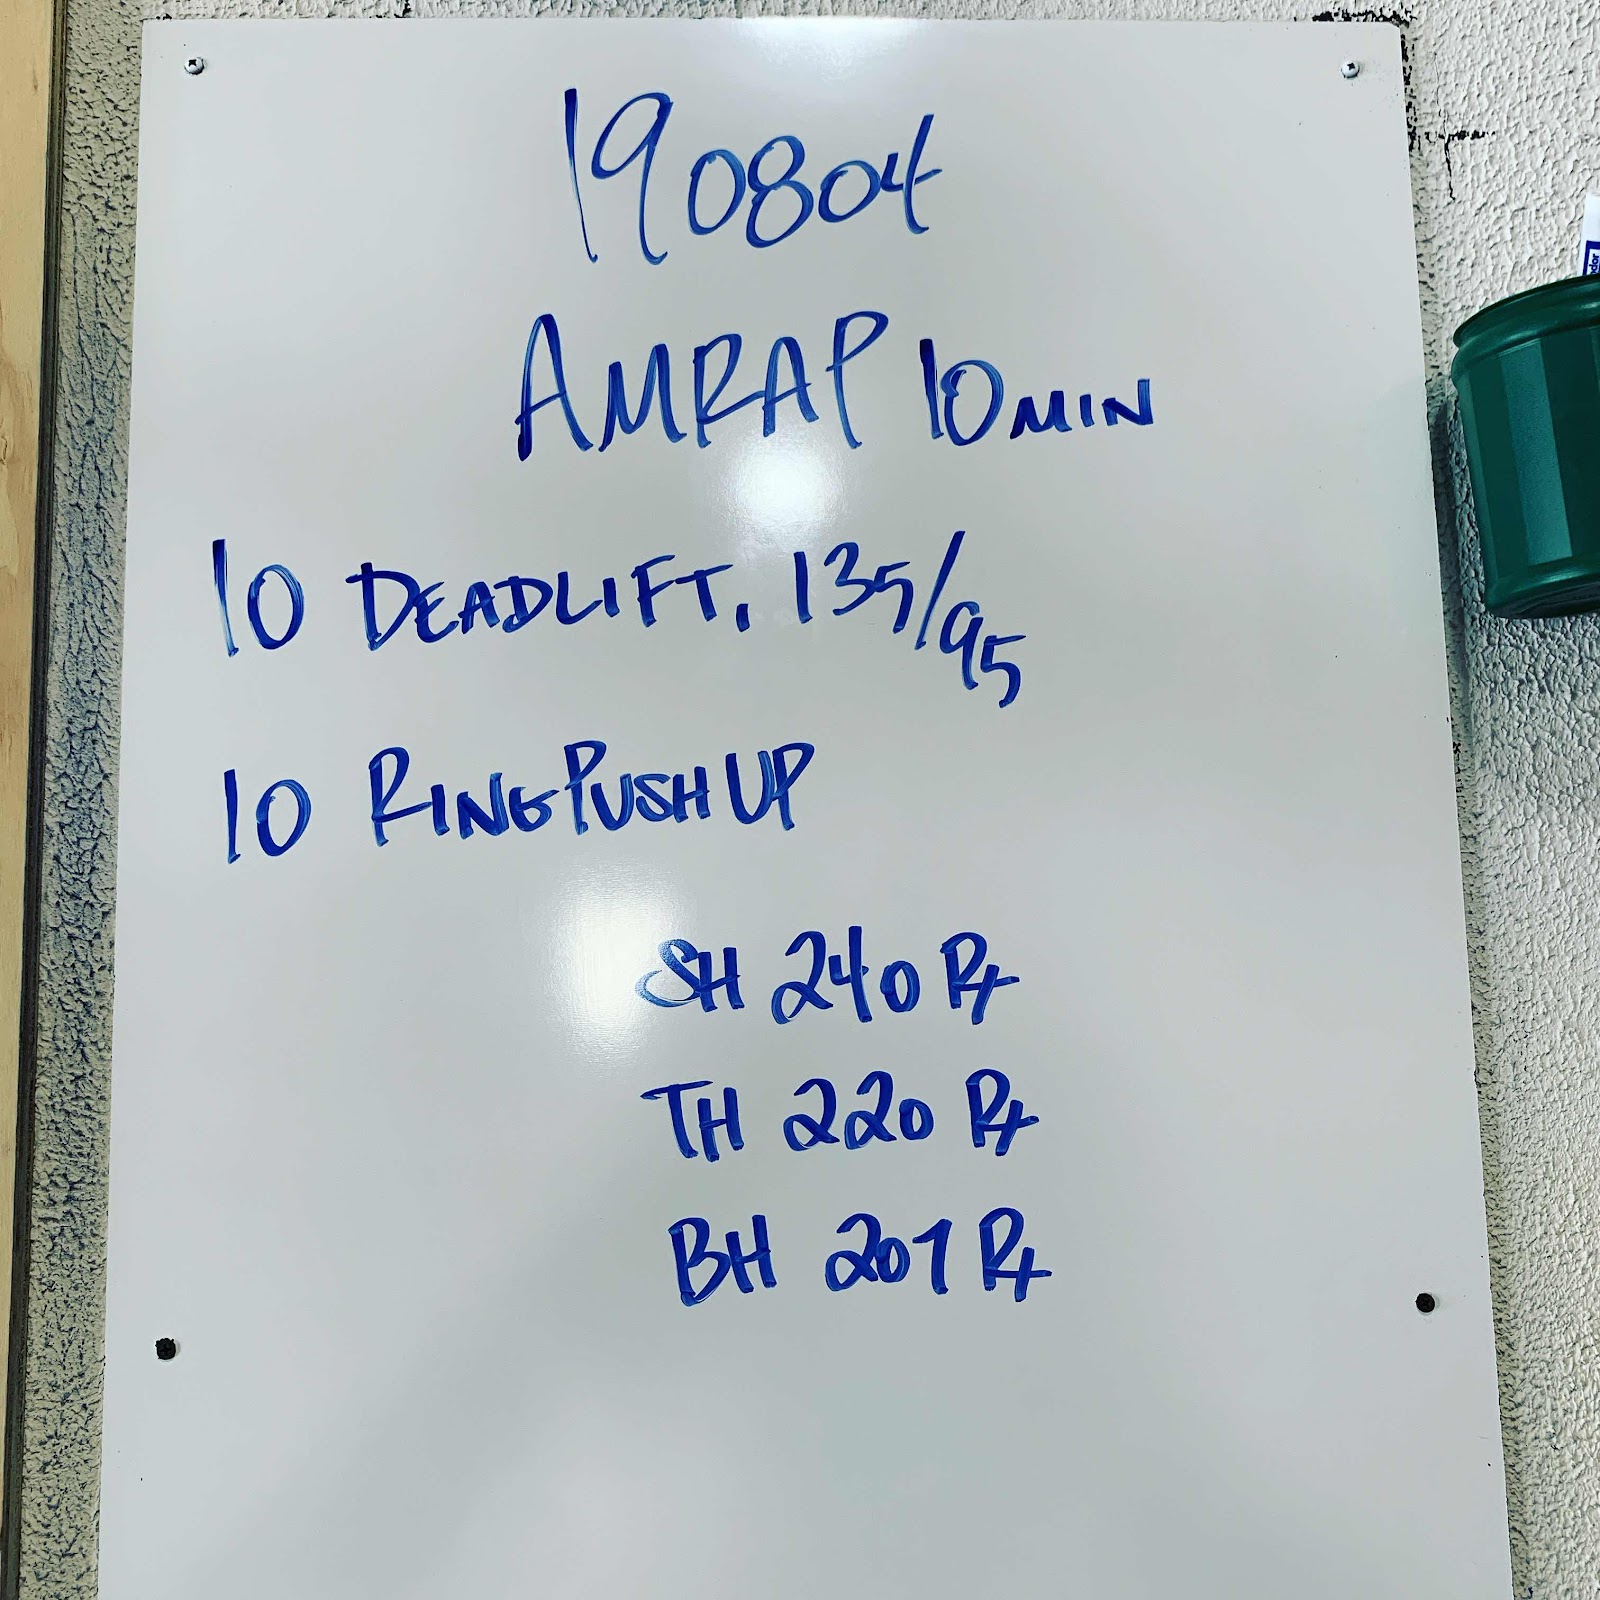 190804
AMRAP 10 MIN
10 DEADLIFT, 135/95
10 RING PUSH UP
SH 240 Rx
TH 220 Rx
BH 201 Rx